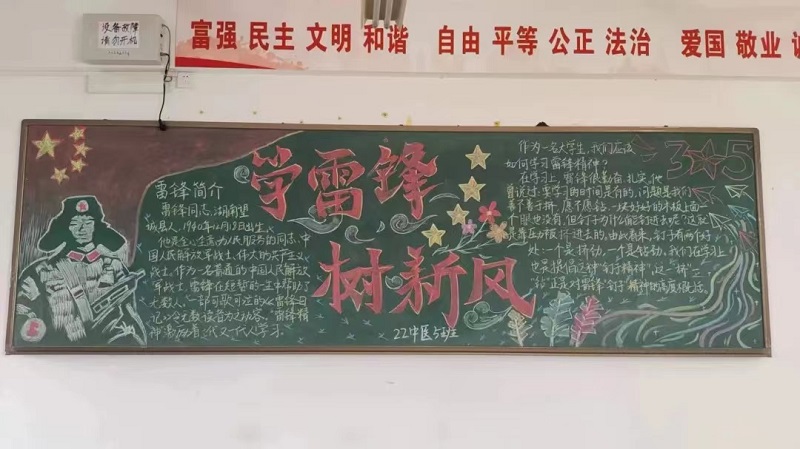 设备故障
请勿开机
富强 民主 文明 和谐 自由 平等 公正 法治 爱国 敬业
学雷锋
树新风
22中医5班
雷锋简介
雷锋同志,湖南望
城县人,1940年12月18日出生。
他是全心全意为人民服务的同志,中
国人民解放军战士,伟大的共产主义
战士,作为一名普通的中国人民解放
军战士,雷锋在短暂的一生中帮助了
无数人,一部可歌可泣的《雷锋日
记》令无数读者为之动容。"雷锋精
神"激励着一代又一代人学习。
作为一名大学生,我们应该
如何学习雷锋精神?
在学习上,雷锋很勤奋,扎实,他
曾说过:要学习的时间是有的,问题是我们
善不善于挤,愿不愿钻。一块好好的木板,上面一
个眼也没有,但钉子为什么能钉进去呢?这就
是靠压力硬挤进去的,由此看来,钉子有两个好
处:一个是挤劲,一个是钻劲,我们在学习上
也要提倡这种"钉子精神",这一"挤"一
"钻"正是对雷锋"钉子"精神的高度概括。
3 5